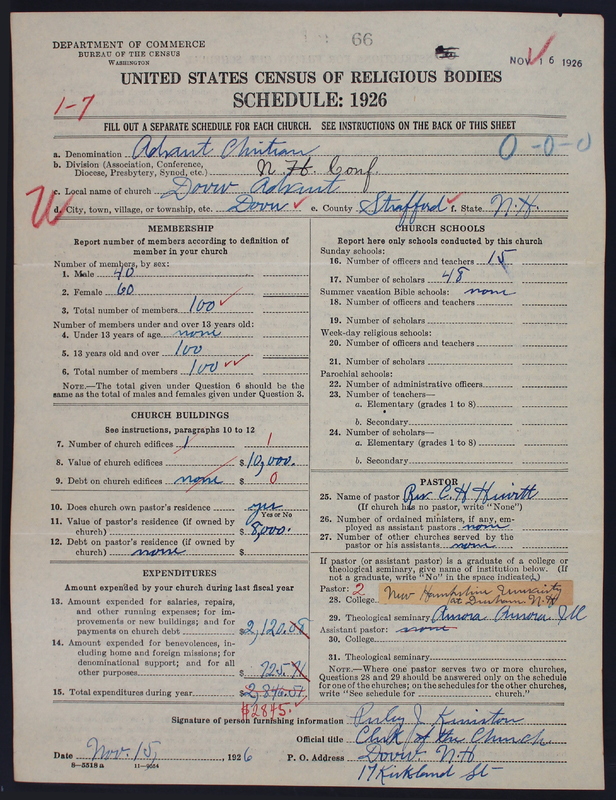 66
DEPARTMENT OF COMMERCE
BUREAU OF THE CENSUS
WASHINGTON
NOV 16 1926
UNITED STATES CENSUS OF RELIGIOUS BODIES
SCHEDULE: 1926
1-7
FILL OUT A SEPARATE SCHEDULE FOR EACH CHURCH. SEE INSTRUCTIONS ON THE BACK OF THIS SHEET
0-0-0
a. Denomination Advent Christian
b. Division (Association, Conference, Diocese, Presbytery, Synod, etc.) N. H. Conf.
c. Local name of church Dover Advent
d. City, town, village, or township, etc. Dover e. County Strafford f. State N.H.
MEMBERSHIP
Report number of members according to definition of member in your church
Number of members, by sex:
1. Male 40
2. Female 60
3. Total number of members 100
Number of members under and over 13 years old:
4. Under 13 years of age none
5. 13 years old and over 100
6. Total number of members 100
NOTE.—The total given under Question 6 should be the same as the total of males and females given under Question 3.
CHURCH BUILDINGS
See instructions, paragraphs 10 to 12
7. Number of church edifices 1 1
8. Value of church edifices $10,000.
9. Debt on church edifices none $ 0
10. Does church own pastor's residence yes
Yes or No
11. Value of pastor's residence (if owned by church) $8,000.
12. Debt on pastor's residence (if owned by church) none $
EXPENDITURES
Amount expended by your church during last fiscal year
13. Amount expended for salaries, repairs, and other running expense; for improvements or new buildings; and for payments on church debt $2,120.08
14. Amount expended for benevolences, including home and foreign missions; for denominational support; and for all other purposes 725.
15. Total expenditures during year $2,846.07
$2845.
CHURCH SCHOOLS
Report here only schools conducted by this church
Sunday schools:
16. Number of officers and teachers 15
17. Number of scholars 48
Summer vacation Bible schools: none
18. Number of officers and teachers
19. Number of scholars
Week-day religious schools:
20. Number of officers and teachers
21. Number of scholars
Parochial schools:
22. Number of administrative officers
23. Number of teachers—
a. Elementary (grades 1 to 8)
b. Secondary
24. Number of scholars—
a. Elementary (grades 1 to 8)
b. Secondary
PASTOR
25. Name of pastor Rev. C. H. Hewitt
(If church has no pastor, write "None")
26. Number of ordained ministers, if any, employed as assistant pastors none
27. Number of other churches served by the pastor or his assistants none
If pastor (or assistant pastor) is a graduate of a college or theological seminary, give name of institution below. (If not a graduate, write "No" in the space indicated.)
Pastor: 2
28. College New Hampshire University at Durham N.H
29. Theological seminary Aurora Aurora Ill
Assistant pastor: none
30. College
31. Theological seminary
NOTE.—Where one pastor serves two or more churches, Questions 28 and 29 should be answered only on the schedule for one of the churches; on the schedules for the other churches, write "See schedule for church."
Signature of person furnishing information Ruley J. Kimiston
Official title Clerk of the Church
Date Nov. 15, 1926 P. O. Address Dover N.H
17 Kirkland St
8—5518 a 11—9554